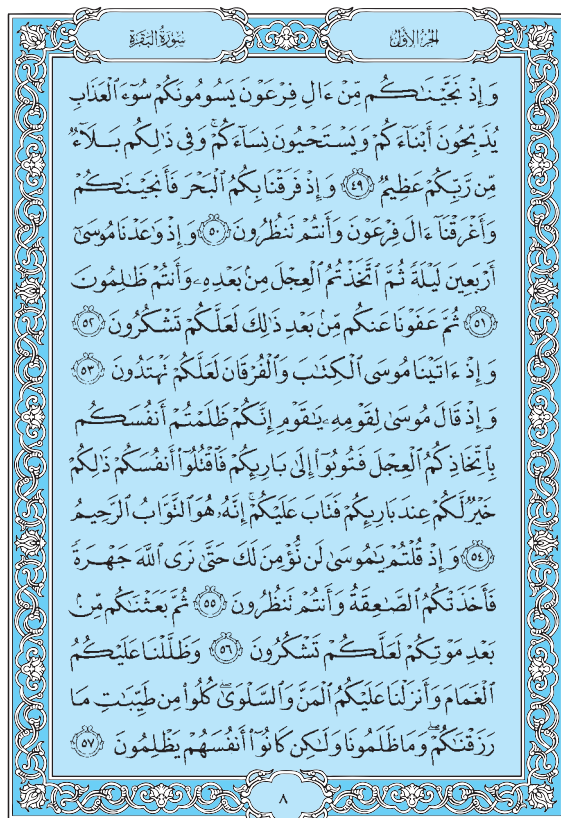 سُورَةُ البَقَرَةِ
الجُزءُ الأوّلُ
وَإِذْ نَجَّيْنَٰكُم مِّنْ ءَالِ فِرْعَوْنَ يَسُومُونَكُمْ سُوٓءَ ٱلْعَذَابِ
يُذَبِّحُونَ أَبْنَآءَكُمْ وَيَسْتَحْيُونَ نِسَآءَكُمْ ۚ وَفِى ذَٰلِكُم بَلَآءٌ
مِّن رَّبِّكُمْ عَظِيمٌ ٤٩ وَإِذْ فَرَقْنَا بِكُمُ ٱلْبَحْرَ فَأَنجَيْنَٰكُمْ
وَأَغْرَقْنَآ ءَالَ فِرْعَوْنَ وَأَنتُمْ تَنظُرُونَ ٥٠ وَإِذْ وَٰعَدْنَا مُوسَىٰٓ
أَرْبَعِينَ لَيْلَةً ثُمَّ ٱتَّخَذْتُمُ ٱلْعِجْلَ مِنۢ بَعْدِهِۦ وَأَنتُمْ ظَٰلِمُونَ
٥١ ثُمَّ عَفَوْنَا عَنكُم مِّنۢ بَعْدِ ذَٰلِكَ لَعَلَّكُمْ تَشْكُرُونَ ٥٢
وَإِذْ ءَاتَيْنَا مُوسَى ٱلْكِتَٰبَ وَٱلْفُرْقَانَ لَعَلَّكُمْ تَهْتَدُونَ ٥٣
وَإِذْ قَالَ مُوسَىٰ لِقَوْمِهِۦ يَٰقَوْمِ إِنَّكُمْ ظَلَمْتُمْ أَنفُسَكُم
بِٱتِّخَاذِكُمُ ٱلْعِجْلَ فَتُوبُوٓا۟ إِلَىٰ بَارِئِكُمْ فَٱقْتُلُوٓا۟ أَنفُسَكُمْ ذَٰلِكُمْ
خَيْرٌ لَّكُمْ عِندَ بَارِئِكُمْ فَتَابَ عَلَيْكُمْ ۚ إِنَّهُۥ هُوَ ٱلتَّوَّابُ ٱلرَّحِيمُ
٥٤ وَإِذْ قُلْتُمْ يَٰمُوسَىٰ لَن نُّؤْمِنَ لَكَ حَتَّىٰ نَرَى ٱللَّهَ جَهْرَةً
فَأَخَذَتْكُمُ ٱلصَّٰعِقَةُ وَأَنتُمْ تَنظُرُونَ ٥٥ ثُمَّ بَعَثْنَٰكُم مِّنۢ
بَعْدِ مَوْتِكُمْ لَعَلَّكُمْ تَشْكُرُونَ ٥٦ وَظَلَّلْنَا عَلَيْكُمُ
ٱلْغَمَامَ وَأَنزَلْنَا عَلَيْكُمُ ٱلْمَنَّ وَٱلسَّلْوَىٰ ۖ كُلُوا۟ مِن طَيِّبَٰتِ مَا
رَزَقْنَٰكُمْ ۖ وَمَا ظَلَمُونَا وَلَٰكِن كَانُوٓا۟ أَنفُسَهُمْ يَظْلِمُونَ ٥٧
٨